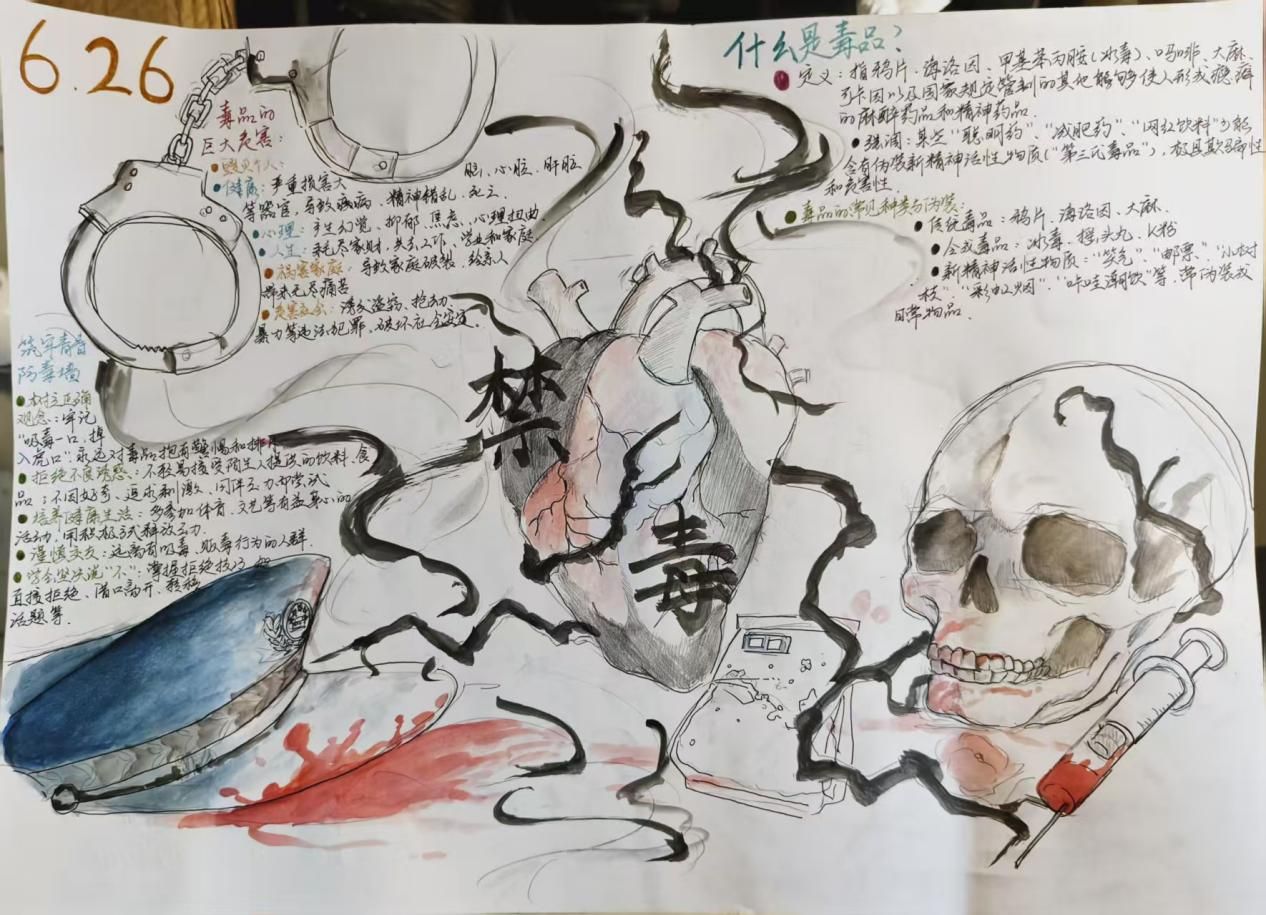 6.26
毒品的
巨大危害：
●毁灭个人：
●健康：严重损害大脑、心脏、肝脏
等器官，导致疾病、精神错乱、死亡
●心理：产生幻觉、抑郁、焦虑、心理扭曲
●人生：耗尽家财、失去工作、学业和家庭
●祸害家庭：导致家庭破裂，给亲人
带来无尽痛苦
●危害社会：诱发盗窃、抢劫、
暴力等违法犯罪，破坏社会安宁.
什么是毒品？
●定义：指鸦片、海洛因、甲基苯丙胺（冰毒）、吗啡、大麻、
可卡因以及国家规定管制的其他能够使人形成瘾癖
的麻醉药品和精神药品.
●强调：某些“聪明药”、“减肥药”、“网红饮料”可能
含有伪装新精神活性物质（“第三代毒品”），极具欺骗性
和危害性.
●毒品的常见种类与伪装：
●传统毒品：鸦片、海洛因、大麻.
●合成毒品：冰毒、摇头丸、K粉
●新精神活性物质：“笑气”、“邮票”、“小树
枝”、“彩虹烟”、“咔哇潮饮”等，常伪装成
日常物品.
禁
毒
筑牢青春
防毒墙
●树立正确
观念：牢记
“吸毒一口，掉
入虎口”永远对毒品抱有警惕和排
●拒绝不良诱惑：不轻易接受陌生人提供的饮料、食
品；不因好奇、追求刺激、同伴压力却尝试
●培养健康生活：多参加体育、文艺等有益身心的
活动，用积极方式释放压力.
●谨慎交友：远离有吸毒、贩毒行为的人群.
●学会坚决说“不”：掌握拒绝技巧
直接拒绝、借口离开、转移
话题等.